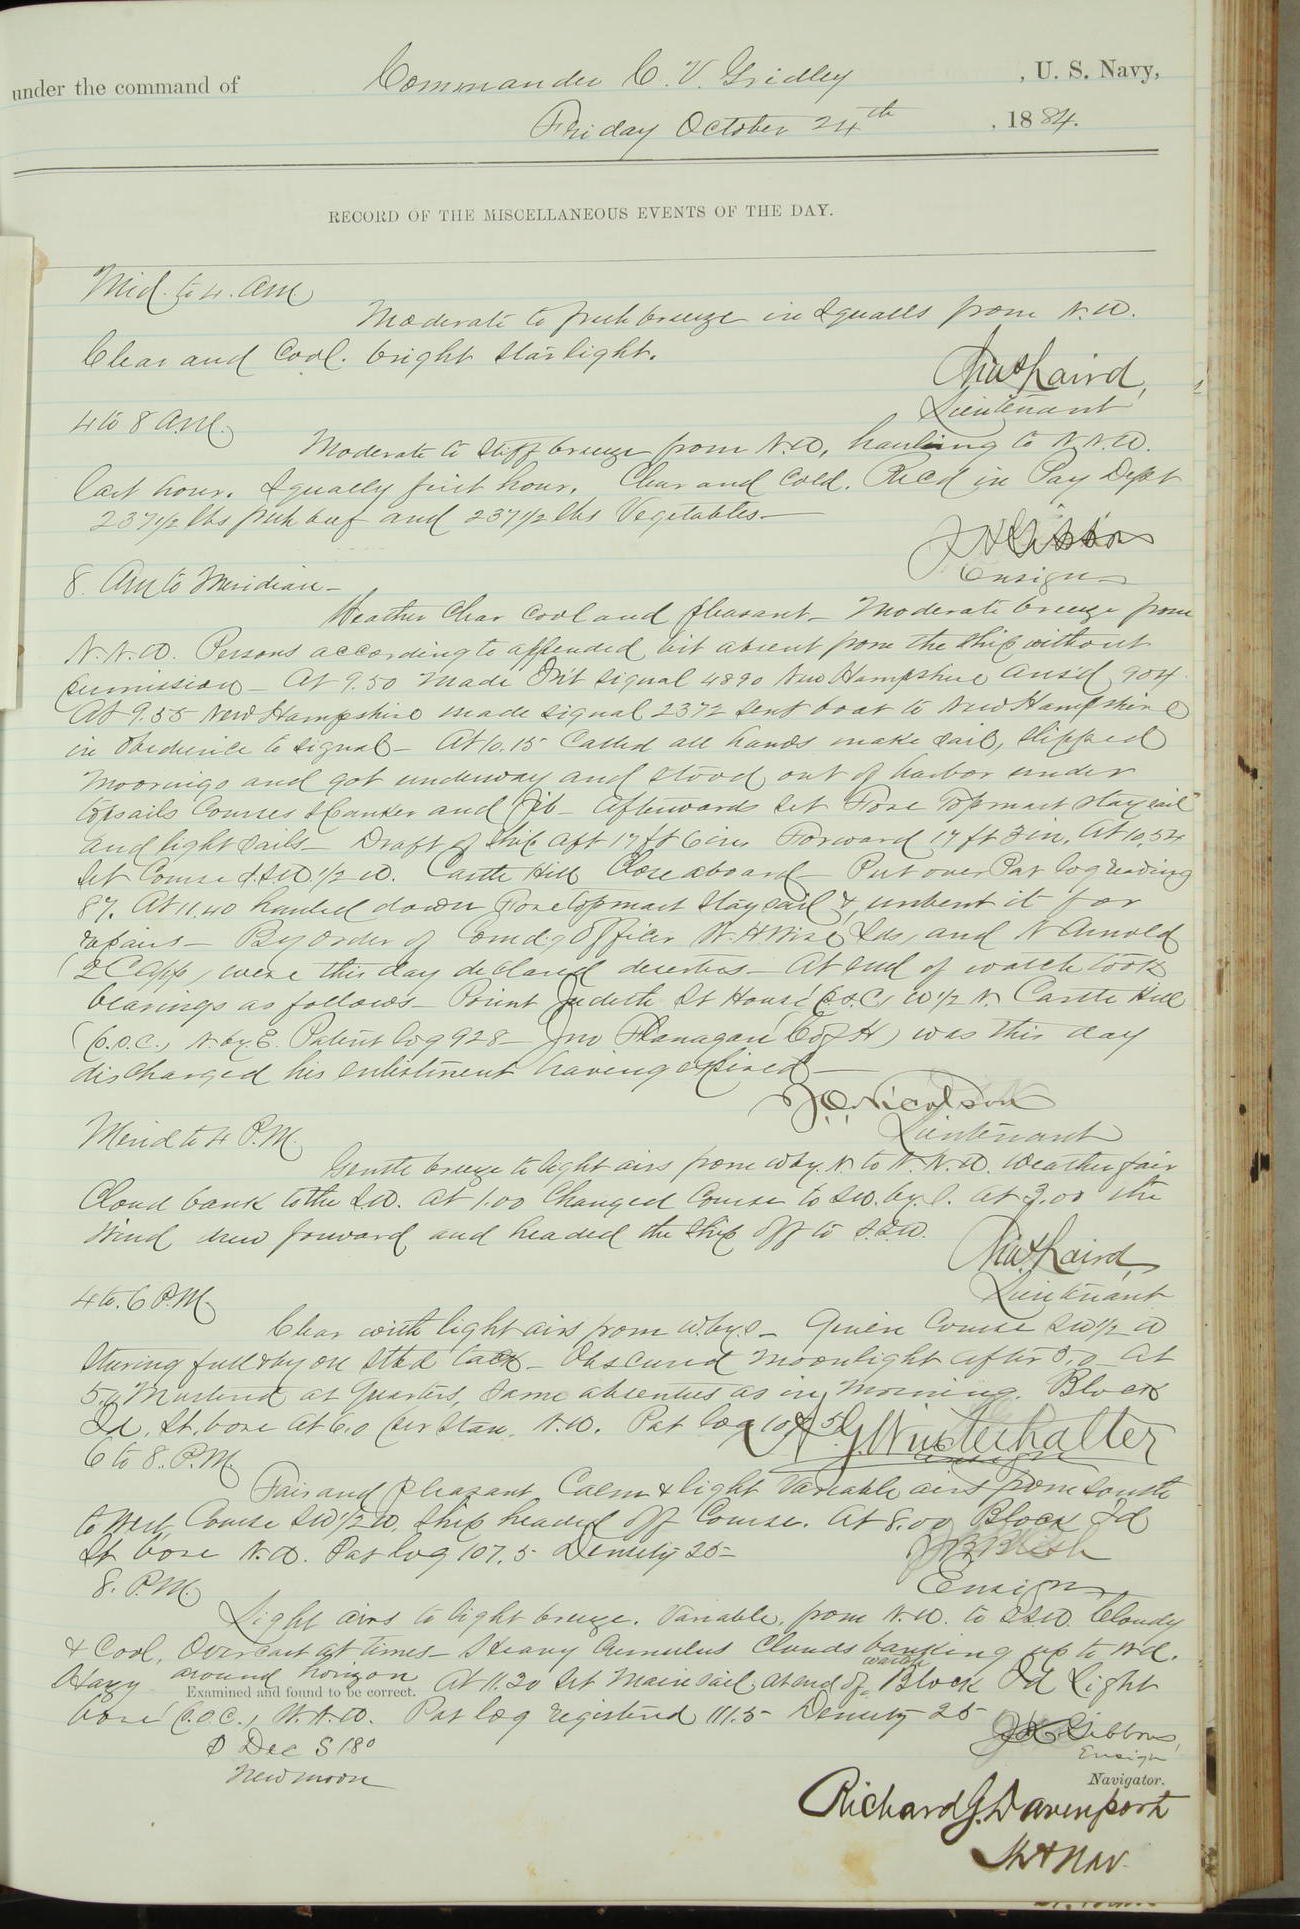 under the command of Commander C. V. Gridley , U. S. Navy,
Friday October 24th , 1884.
RECORD OF THE MISCELLANEOUS EVENTS OF THE DAY.
Mid. to 4. AM.
Moderate to fresh breeze in squalls from N.W.
Clear and Cool. bright starlight.
Chas Laird,
Lieutenant
4 to 8 A.M.
Moderate to stiff breeze from N.W, hauling to N.N.W.
last hour. Squally first hour. Clear and Cold. Recd in Pay Dept
237 1/2 lbs fresh beef and 237 1/2 lbs Vegetables.
J H Gibbons
Ensign
8. AM to Meridian
Weather Clear Cool and pleasant. Moderate breeze from
N.N.W. Persons according to appended list absent from the ship without
permission. At 9.50 made Int signal 4890 New Hampshire ans'd 904.
At 9.55 New Hampshire made signal 2372 sent boat to New Hampshire
in obedience to signal. At 10.15 Called all hands make sail, slipped
moorings and got underway and stood out of harbor under
topsails Courses spanker and Jib. Afterwards set Fore Topmast staysail
and light sails. Draft of Ship aft 17 ft 6 ins Forward 17 ft in. At 10.54
set Course S.S.W. 1/2 W. Castle Hill Close aboard. Put over Pat log reading
87. At 11.40 hauled down Foretopmast staysail & unbent it for
repairs. By order of Comd'g Officer W. H Wise Lds, and N Arnold
(2 C App) were this day declared deserters. At end of watch took
bearings as follows. Point Judith Lt House (p.s.c) W 1/2 N Castle Hill
(p.s.c.) N. by. E. Patent log 928 Jno Flanagan (C of H) was this day
discharged his enlistment having expired
J. O. Nicolson
Lieutenant
Merid to 4 P.M.
Gentle breeze to light airs from W by. N. to N. N. W. Weather fair
Cloud bank to the S.W. At 1.00 Changed Course to SW. by. S. At 3.00 the
wind drew forward and headed the ship off to S.S.W.
Chas. Laird,
Lieutenant
4 to. 6 P.M.
Clear with light airs from W. by S. Given Course SW 1/2 W
steering full & by on Stbd tack. Obscured moonlight after 5.0 At
5. Mustered at Quarters, same absentees as in morning. Block
Id. Lt. bore at 6.0 (per Stan. N.W. Pat log 10 5.
A G. Winterhalter
Ensign
6 to 8. P.M.
Fair and pleasant Calm & light Variable airs from South
to West. Course SW 1/2 W. Ship headed off Course. At 8.00 Block Id
Lt bore N.W. Pat log 107.5 Density 25
J B Blish
Ensign
8. P.M.
Light airs to light breeze. Variable, from N.W. to SSW. Cloudy
& Cool, Overcast at times. Heavy Cumulus Clouds banking up to N'd.
Hazy around horizon At 11.30 set Mainsail, at end of watch Block Id Light
Examined and found to be correct.
bore (p.s.c.) N.N.W. Pat log registered 111.5 Density 25
J H Gibbons,
Ensign
Dec S 18°
New moon
Navigator.
Richard G. Davenport
Lt & Nav.